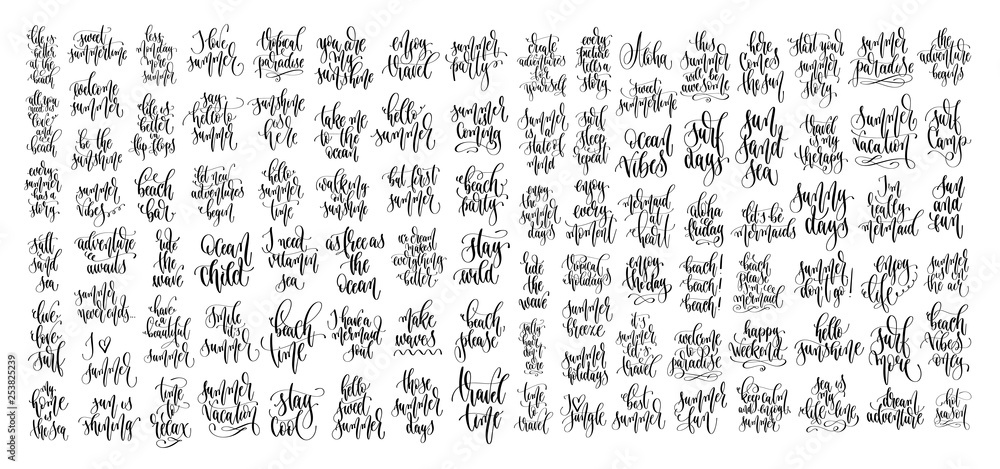 life is
better
at the
beach
sweet
summertime
less
monday
more
summer
I love
summer
tropical
paradise
you are
my
sunshine
enjoy
travel
summer
party
create
adventures
for
yourself
every
picture
tells a
story
Aloha
this
summer
will be
awesome
here
comes
the sun
start your
summer
story
summer
paradise
the
adventure
begins
all you
need is
love
and
beach
welcome
summer
life is
better
in
flip flops
say
hello to
summer
sunshine
is
here
take me
to the
ocean
hello
summer
summer
is
coming
summer
is a
state of
mind
surf
sleep
repeat
sweet
summertime
ocean
vibes
surf
days
sun
sand
sea
travel
is my
therapy
summer
vacation
surf
camp
be the
sunshine
every
summer
has a
story
summer
vibes
beach
bar
let new
adventures
begin
hello
summer
time
walking
on
sunshine
but first
summer
beach
party
enjoy
the
summer
days
enjoy
every
moment
mermaid
at
heart
aloha
friday
let's be
mermaids
sunny
days
I'm
really
a
mermaid
sun
and
fun
salt
sand
sea
adventure
awaits
ride
the
wave
ocean
child
I need
vitamin
sea
as free as
the
ocean
we dream
makes
everything
better
stay
wild
ride
the
wave
tropical
holidays
enjoy
the day
beach!
beach!
beach!
beach
please
I'm
mermaid
summer
don't go!
enjoy
life
summer
in
the air
live
love
surf
summer
never ends...
have
a
beautiful
summer
smile
it's
summer
beach
time
I have a
mermaid
soul
make
waves
beach,
please
salty
but
don't
care
summer
breeze
it's
summer
let's
travel
welcome
to
paradise
happy
weekend
hello
sunshine
surf
more
beach
vibes
only
I
summer
summer
holidays
my
home
is
the sea
sun is
shining
time
to
relax
summer
vacation
stay
cool
hello
sweet
summer
those
summer
days
travel
time
time
to
travel
I
jungle
best
summer
summer
fun
keep calm
and enjoy
summer
sea is
my
life line
dream
adventure
hot
season
Adobe Stock | #253825239
Adobe Stock